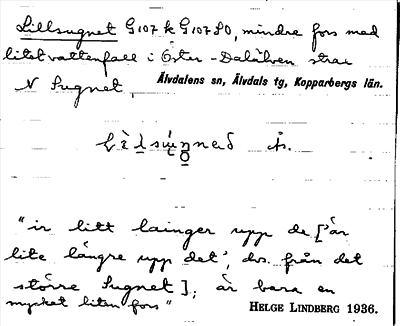 Lillsugnet G107 k G107 SO, mindre fors med
litet vattenfall i Öster-Dalälven strax
N Sugnet.
Älvdalens sn, Älvdals tg, Kopparbergs län.
ås.
"ir litt lainger upp de ['är
lite längre upp det', dvs. från det
större Sugnet]; är bara en
mycket liten fors"
HELGE LINDBERG 1936.